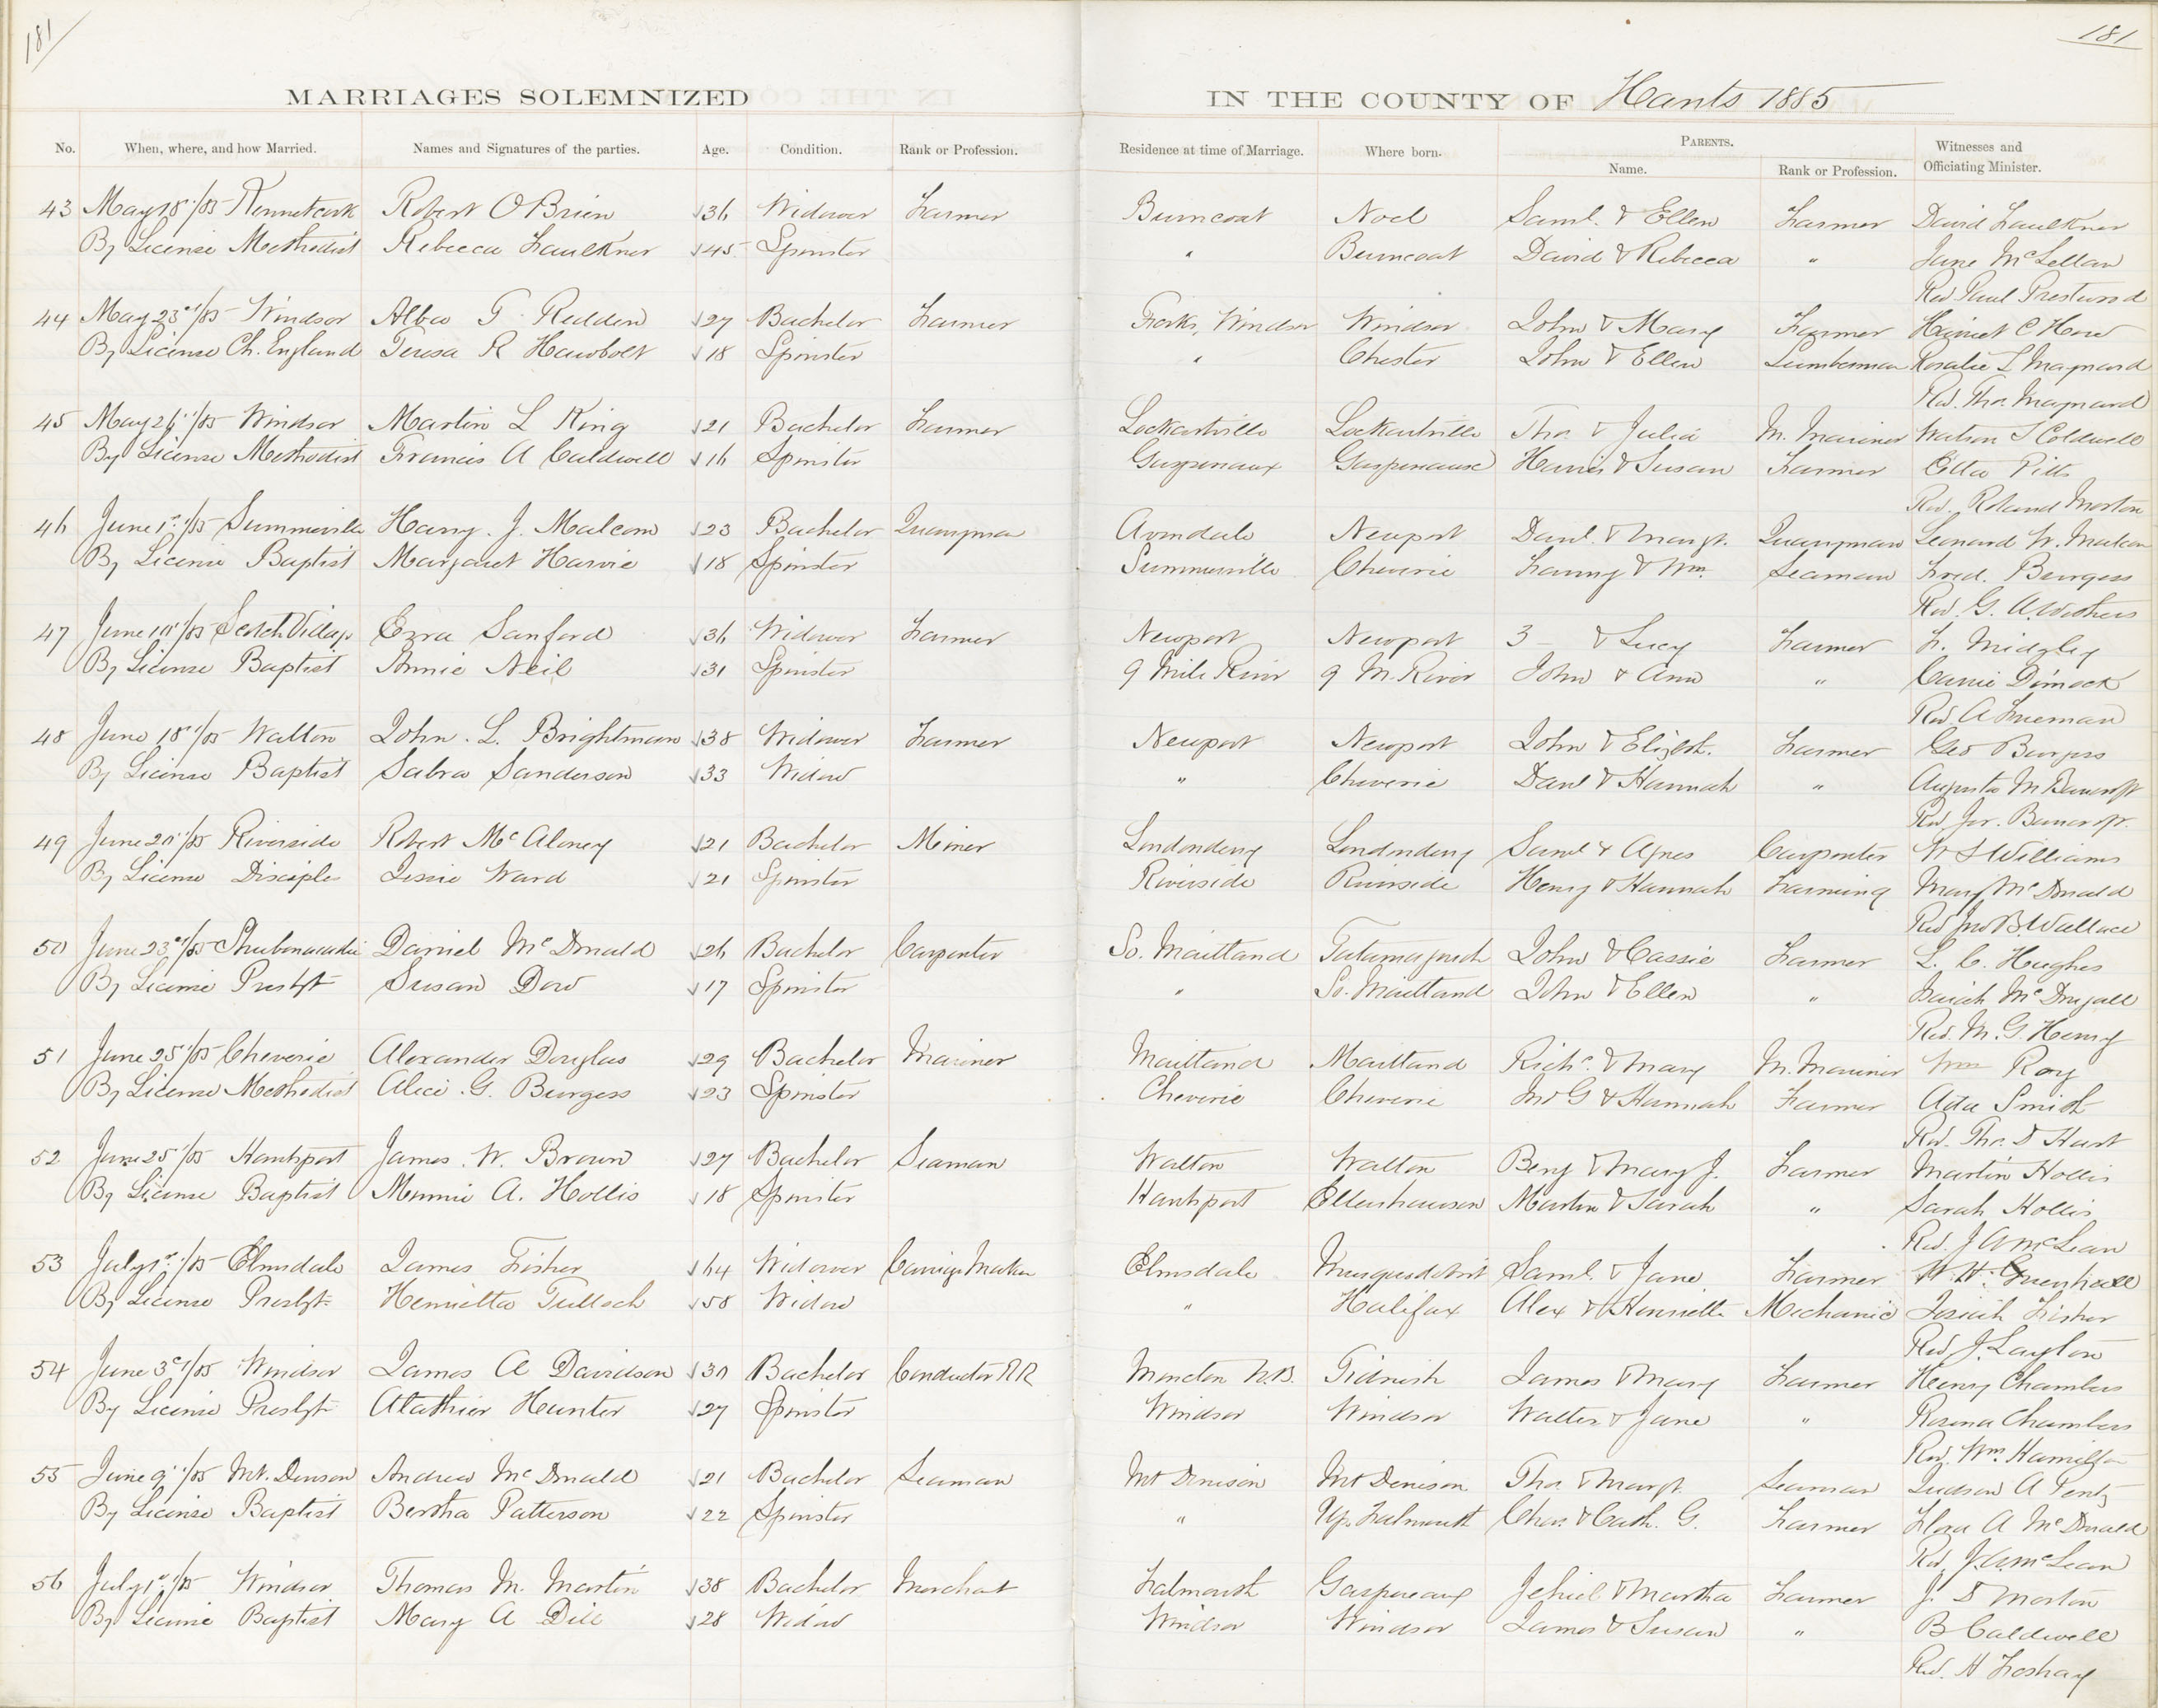 181
181
MARRIAGES SOLEMNIZED IN THE COUNTY OF Hants 1885
No. When, where, and how Married. Names and Signatures of the parties. Age. Condition. Rank or Profession. Residence at time of Marriage. Where born. PARENTS. Name. Rank or Profession. Witnesses and Officiating Minister.
43 May 18/85 Kennetcook Robert O'Brien 36 Widower Farmer Burncoat Noel Saml. & Ellen Farmer David Faulkner
By License Methodist Rebecca Faulkner 45 Spinster " Burncoat David & Rebecca " Jane McLellan
Rev Paul Prestwood
44 May 23d/85 Windsor Albro T. Redden 27 Bachelor Farmer Forks, Windsor Windsor John & Mary Farmer Harriet C How
By License Ch. England Teresa R Hawbolt 18 Spinster " Chester John & Ellen Lumberman Rosalie L Maynard
Rev. Thos. Maynard
45 May 26/85 Windsor Martin L King 21 Bachelor Farmer Lockartville Lockartville Thos. & Julia M. Mariner Watson S Coldwell
By License Methodist Francis A Caldwell 16 Spinster Gaspereaux Harris & Susan Farmer Etta Pitts
Rev. Roland Morton
46 June 1st/85 Summerville Harry J. Malcom 23 Bachelor Quarryman Avondale Newport Danl. & Margt. Quarryman Leonard W. Malcom
By License Baptist Margaret Harvie 18 Spinster Summerville Cheverie Fanny & Wm. Seaman Fred. Burgess
Rev. G. A. Weathers
47 June 10/85 Scotch Village Ezra Sanford 36 Widower Farmer Newport Newport & Lucy Farmer F. Midgley
By License Baptist Annie Neil 31 Spinster 9 Mile River 9 M. River John & Ann " Carrie Dimock
Rev. A Freeman
48 June 18/85 Walton John L. Brightman 38 Widower Farmer Newport Newport John & Elizbt. Farmer Geo Burgess
By License Baptist Sabra Sanderson 33 Widow " Cheverie Danl & Hannah " Augusta M Bancroft
Rev Jer. Bancroft
49 June 20/85 Riverside Robert McAloney 21 Bachelor Miner Londonderry Londonderry Saml & Agnes Carpenter W J Williams
By License Disciples Jessie Ward 21 Spinster Riverside Riverside Henry & Hannah Farming Mary McDonald
Rev Jno B. Wallace
50 June 23d/85 Shubenacadie Daniel McDonald 26 Bachelor Carpenter So. Maitland Tatamagouch John & Cassie Farmer L. C. Hughes
By License Presbyt Susan Dow 17 Spinster " So. Maitland John & Ellen " Isaiah McDougall
Rev. M. G. Henry
51 June 25/85 Cheverie Alexander Douglas 29 Bachelor Mariner Maitland Maitland Richd. & Mary M. Mariner Wm Roy
By License Methodist Alice G. Burgess 23 Spinster Cheverie Cheverie Jno G & Hannah Farmer Ada Smith
Rev. Thos. D Hart
52 June 25/85 Hantsport James W. Brown 27 Bachelor Seaman Walton Walton Benj & Mary J. Farmer Martin Hollis
By License Baptist Minnie A. Hollis 18 Spinster Hantsport Ellershausen Martin & Sarah " Sarah Hollis
Rev. J A McLean
53 July 1st/85 Elmsdale James Fisher 64 Widower Carriage Maker Elmsdale Musquodobit Saml. & Jane Farmer
By License Presbyt Henrietta Tulloch 58 Widow " Halifax Alex & Henrietta Mechanic Josiah Fisher
Rev J. Layton
54 June 3d/85 Windsor James A Davidson 30 Bachelor Conductor RR Moncton N.B. Tidnish James & Mary Farmer Henry Chambers
By License Presbyt Alathier Hunter 27 Spinster Windsor Windsor Walter & Jane " Rosena Chambers
Rev. Wm. Hamilton
55 June 9/85 Mt. Denson Andrew McDonald 21 Bachelor Seaman Mt Denison Mt Denison Thos. & Margt. Seaman Judson A Pentz
By License Baptist Bertha Patterson 22 Spinster " Up. Falmouth Chas. & Cath. G. Farmer Flora A McDonald
Rev. J. A. McLean
56 July 1st/85 Windsor Thomas M. Martin 38 Bachelor Merchant Falmouth Gaspereaux Jehiel & Martha Farmer J. D Morton
By License Baptist Mary A Dill 28 Widow Windsor Windsor James & Susan " B Caldwell
Rev. H Foshay